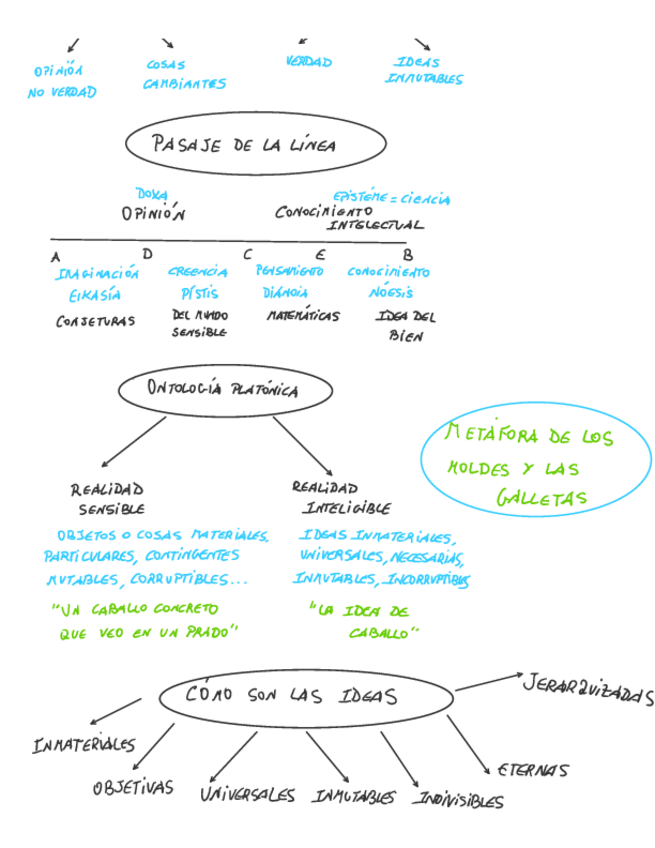 OPINIÓN COSAS VERDAD IDEAS
NO VERDAD CAMBIANTES INMUTABLES
PASAJE DE LA LÍNEA
DOXA EPISTÉME = CIENCIA
OPINIÓN CONOCIMIENTO
INTELECTUAL
A D C E B
IMAGINACIÓN CREENCIA PENSAMIENTO CONOCIMIENTO
EIKASÍA PÍSTIS DIÁNOIA NÓESIS
CONJETURAS DEL MUNDO MATEMÁTICAS IDEA DEL
SENSIBLE BIEN
ONTOLOGÍA PLATÓNICA
METÁFORA DE LOS
MOLDES Y LAS
GALLETAS
REALIDAD REALIDAD
SENSIBLE INTELIGIBLE
OBJETOS O COSAS MATERIALES, IDEAS INMATERIALES,
PARTICULARES, CONTINGENTES UNIVERSALES, NECESARIAS,
MUTABLES, CORRUPTIBLES... INMUTABLES, INCORRUPTIBLES
"UN CABALLO CONCRETO "LA IDEA DE
QUE VEO EN UN PRADO" CABALLO"
CÓMO SON LAS IDEAS
JERARQUIZADAS
INMATERIALES
ETERNAS
OBJETIVAS UNIVERSALES INMUTABLES INDIVISIBLES